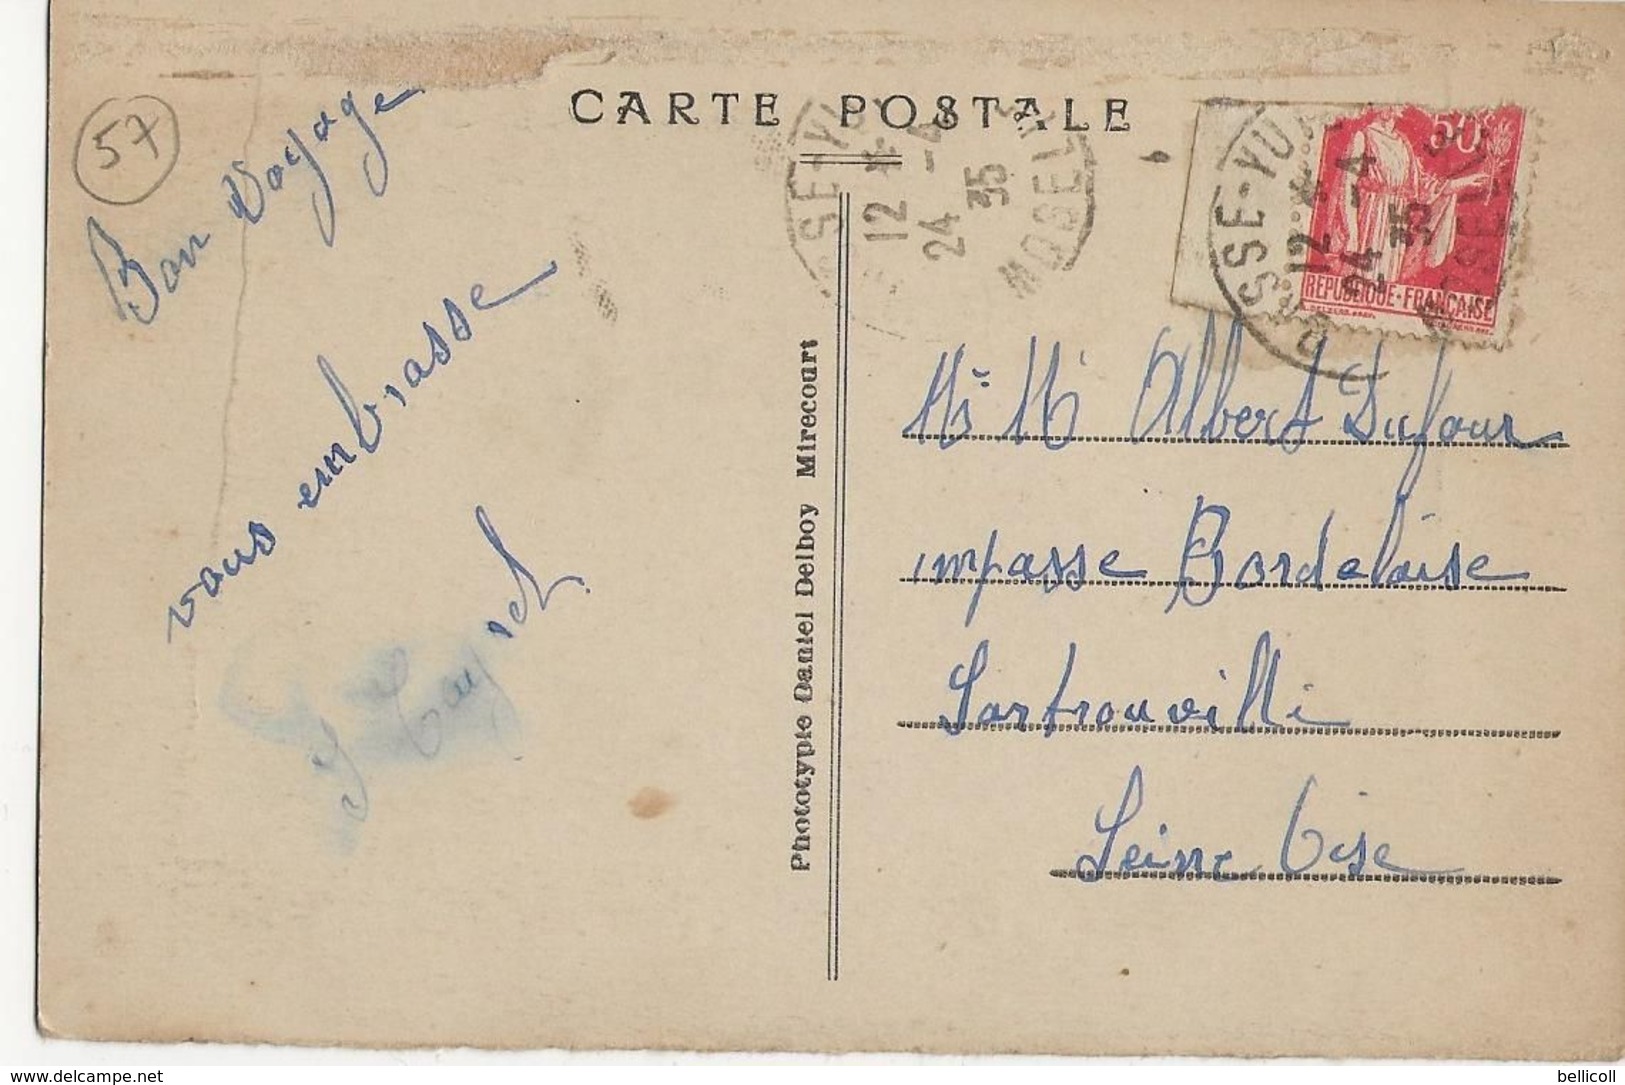 CARTE POSTALE
57
Bon Voyage
vous embrasse
SSE-YU
12
24 -4
35
MOSELLE
50
BASSE-YU
12
24 -4
35
REPUBLIQUE-FRANÇAISE
Phototypie Daniel Delboy Mirecourt
Albert Dufour
impasse Bordelaise
Sartrouville
Seine Oise
www.delcampe.net
bellicoll